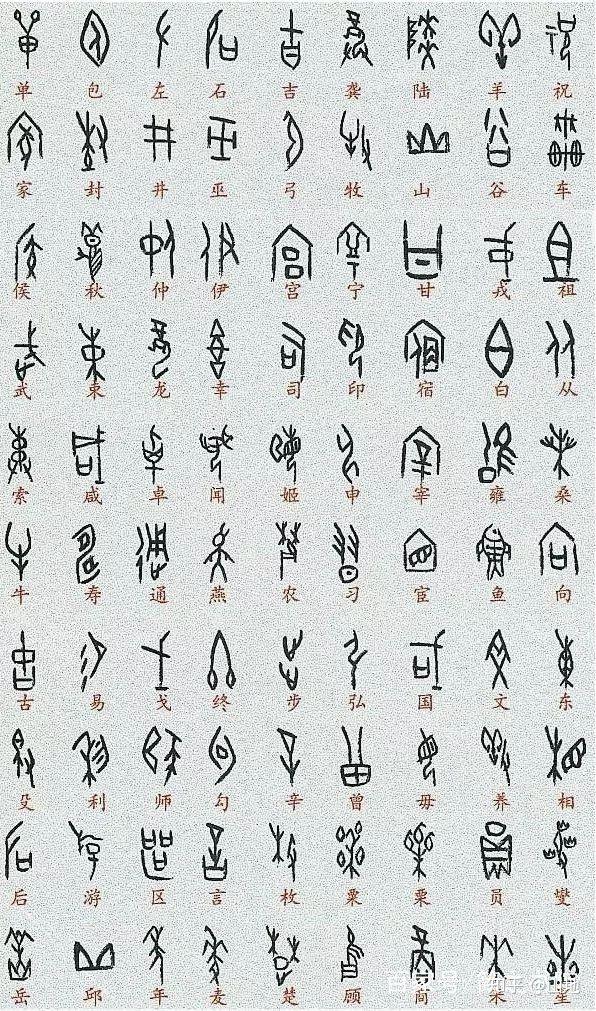 单 包 左 石 吉 龚 陆 羊 祝
家 封 井 巫 弓 牧 山 谷 车
侯 秋 仲 伊 宫 宁 甘 戎 祖
武 束 龙 幸 司 印 宿 白 从
索 咸 卓 闻 姬 申 宰 雍 桑
牛 寿 通 燕 农 习 宦 鱼 向
古 易 戈 终 步 弘 国 文 东
殳 利 师 勾 辛 曾 毋 养 相
后 游 区 言 枚 粟 栗 员 燮
岳 邱 年 麦 楚 顾 商 来 星
百家号
知乎